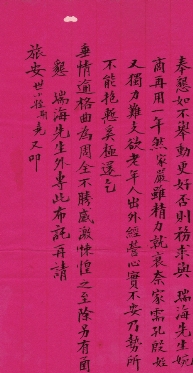 奉懇如不舉動更好否則務求與 瑞海先生婉
商再用一年然家嚴雖精力就衰奈家需孔殷姪
又獨力難支欲老年人出外經營心實不安乃勢所
不能抱極奚極還乞
垂情逾格曲為周全不勝感激悚惶之至除另有函
懇 瑞海先生外專此布託再請
旅安 世小姪 又叩